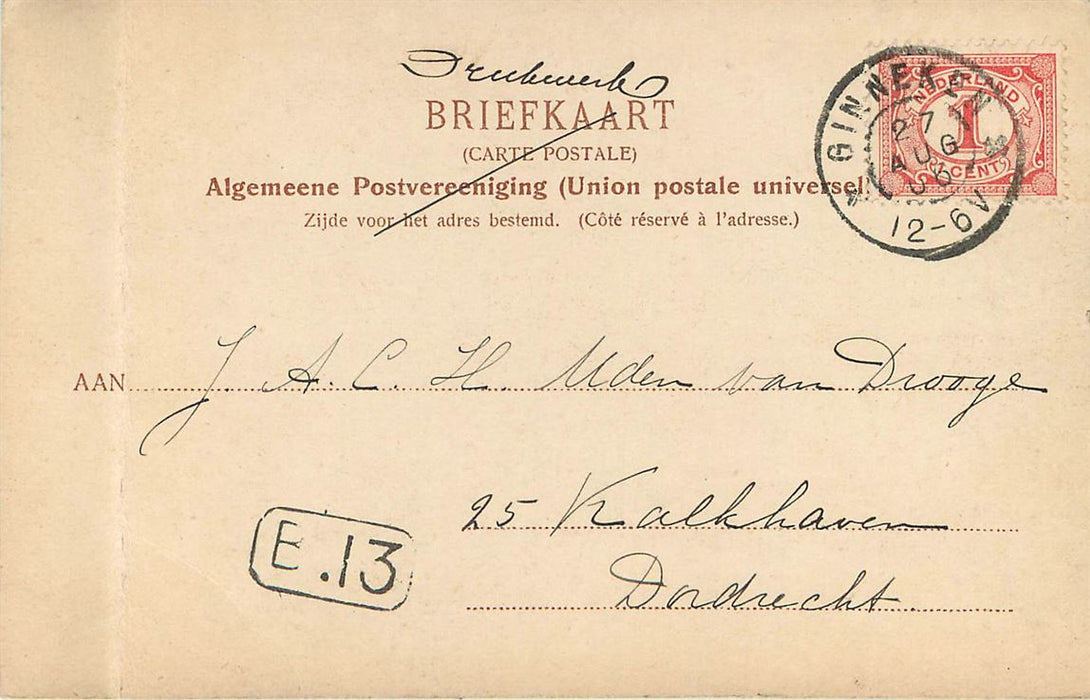 Drukwerk
BRIEFKAART
(CARTE POSTALE)
Algemeene Postvereeniging (Union postale universel
Zijde voor het adres bestemd. (Côté réservé à l'adresse.)
NEDERLAND
1
CENT
GINNEKEN
27
AUG
06
12-6V
AAN J. A. C. H. Uden van Drooge
25 Kalkhaven
Dordrecht.
E.13